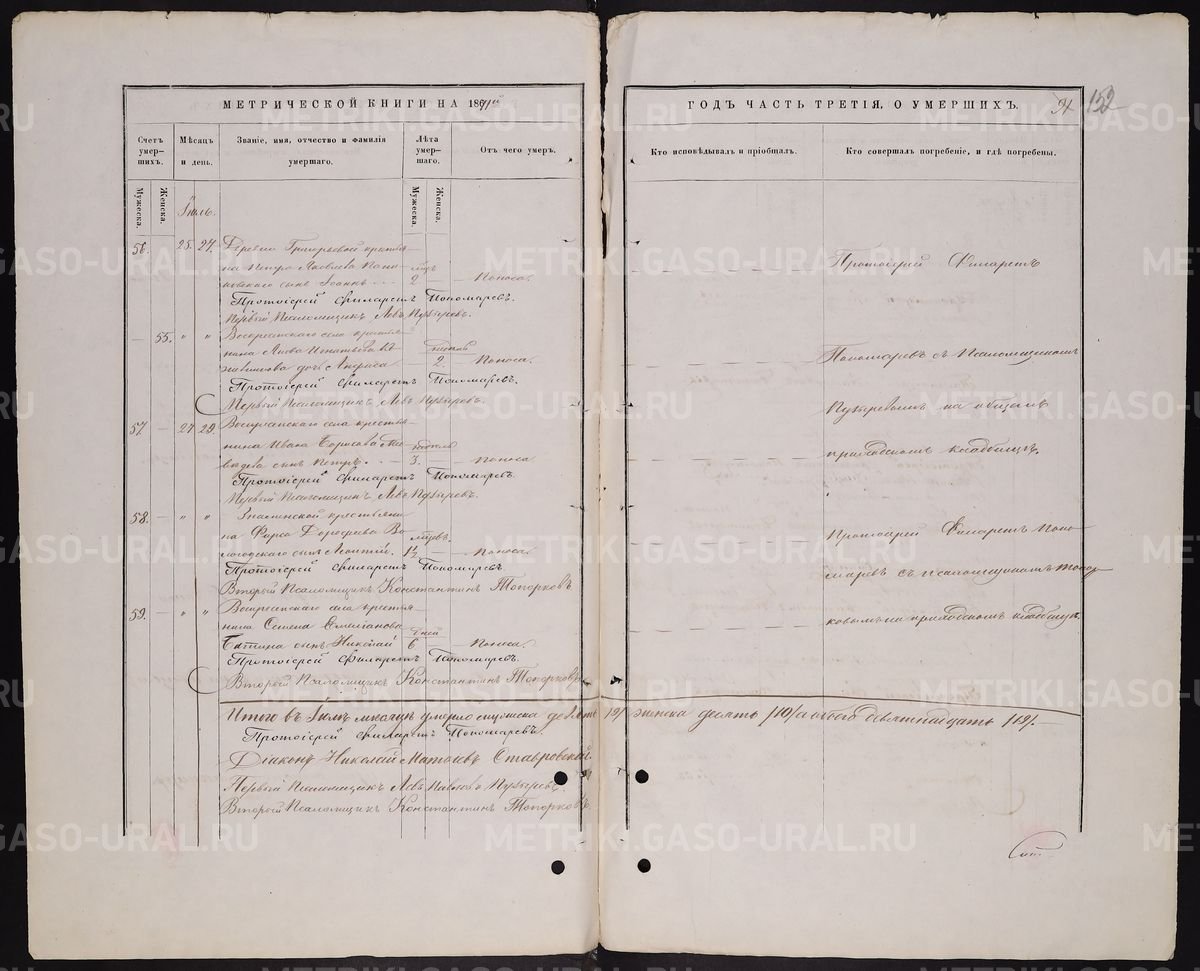 МЕТРИЧЕСКОЙ КНИГИ НА 18
ГОДЪ ЧАСТЬ ТРЕТІЯ, О УМЕРШИХЪ.
152
Счетъ умерших­ъ.
Мѣсяцъ и день.
Званіе, имя, отчество и фамилія умершаго.
Лѣта умершаго.
Отъ чего умеръ.
Кто исповѣдывалъ и пріобщалъ.
Кто совершалъ погребеніе, и гдѣ погребены.
Мужеска.
Женска.
Мужеска.
Женска.
Іюль.
56. 25. 27. Деревни Григорьевой крестья-
на Петра Яковлева
сынъ Іоаннъ 2 Поноса.
Протоіерей Филаретъ Пономаревъ.
Первый Псаломщикъ Левъ Пузыревъ.
55. " " Воскресенскаго села крестья-
нина Игнатьева
дочь 2. Поноса.
Протоіерей Филаретъ Пономаревъ.
Первый Псаломщикъ Левъ Пузыревъ.
57. 27 29. Воскресенскаго села крестья-
нина Ивана Борисова Ме-
сынъ Петръ. 3. Поноса
Протоіерей Филаретъ Пономаревъ.
Первый Псаломщикъ Левъ Пузыревъ.
58. " " крестьяни-
на Фирса Дорофеева Во-
логодскаго сынъ Леонтій. 1½ Поноса.
Протоіерей Филаретъ Пономаревъ.
Второй Псаломщикъ Константинъ Топорковъ
59. " " Воскресенскаго села крестья-
нина Семена Емеліанова
сынъ Николай 6 дней Поноса.
Протоіерей Филаретъ Пономаревъ.
Второй Псаломщикъ Константинъ Топорковъ
Протоіерей Филаретъ
Пономаревъ съ Псаломщикомъ
Пузыревымъ на общемъ
приходскомъ кладбищѣ.
Протоіерей Филаретъ Поно-
маревъ съ псаломщикомъ Топор-
ковымъ на приходскомъ кладбищѣ.
Итого въ Іюлѣ мѣсяцѣ умерло мужеска девять /9/ женска десять /10/ а обоего девятнадцать /19/.
Протоіерей Филаретъ Пономаревъ.
Діаконъ Николай Матвѣевъ Ставровскій.
Первый Псаломщикъ Левъ Павловъ Пузыревъ.
Второй Псаломщикъ Константинъ Топорковъ.
METRIKI.GASO-URAL.RU